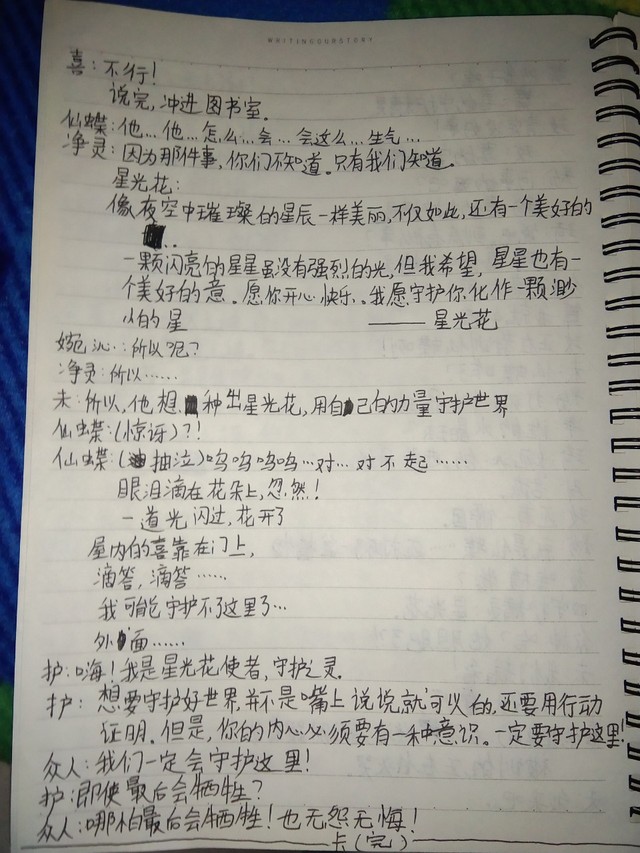 WRITINGOURSTORY
喜：不行！
说完，冲进图书室。
仙蝶：他…他…怎么…会…会这么…生气…
净灵：因为那件事，你们不知道。只有我们知道。
星光花：
像夜空中璀璨的星辰一样美丽，不仅如此，还有一个美好的
..
一颗闪亮的星星虽没有强烈的光，但我希望，星星也有一
个美好的意。愿你开心快乐。我愿守护你，化作一颗渺
小的星 —— 星光花
婉沁：所以呢？
净灵：所以……
未：所以，他想种出星光花，用自己的力量守护世界
仙蝶：（惊讶）？！
仙蝶：（抽泣）呜呜呜呜…对…对不起……
眼泪滴在花朵上，忽然！
一道光闪过，花开了
屋内的喜靠在门上，
滴答，滴答……
我可能守护不了这里了…
外面……
护：嗨！我是星光花使者，守护之灵.
护：想要守护好世界，并不是嘴上说说就可以的，还要用行动
证明。但是，你的内心必须要有一种意识。一定要守护这里！
众人：我们一定会守护这里！
护：即使最后会牺牲？
众人：哪怕最后会牺牲！也无怨无悔！
卡（完）